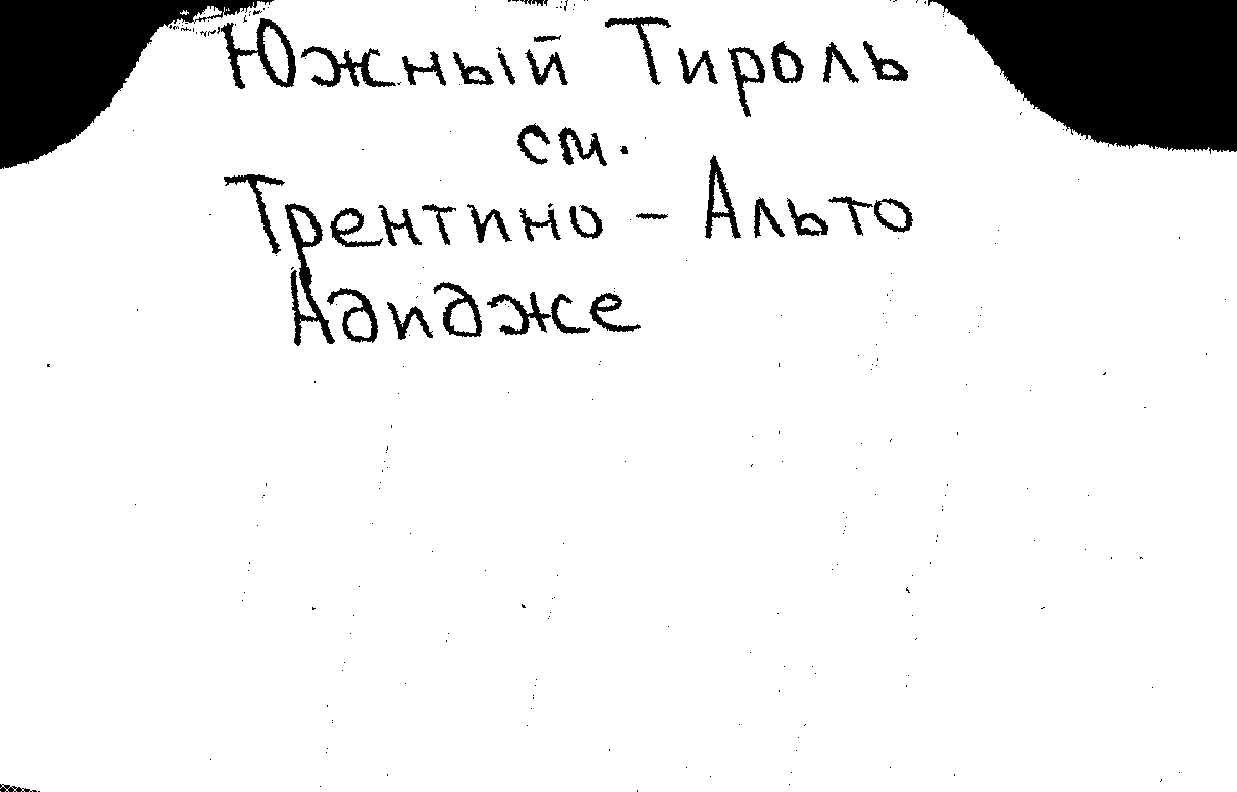 Южный Тироль
см.
Трентино - Альто
Адидже